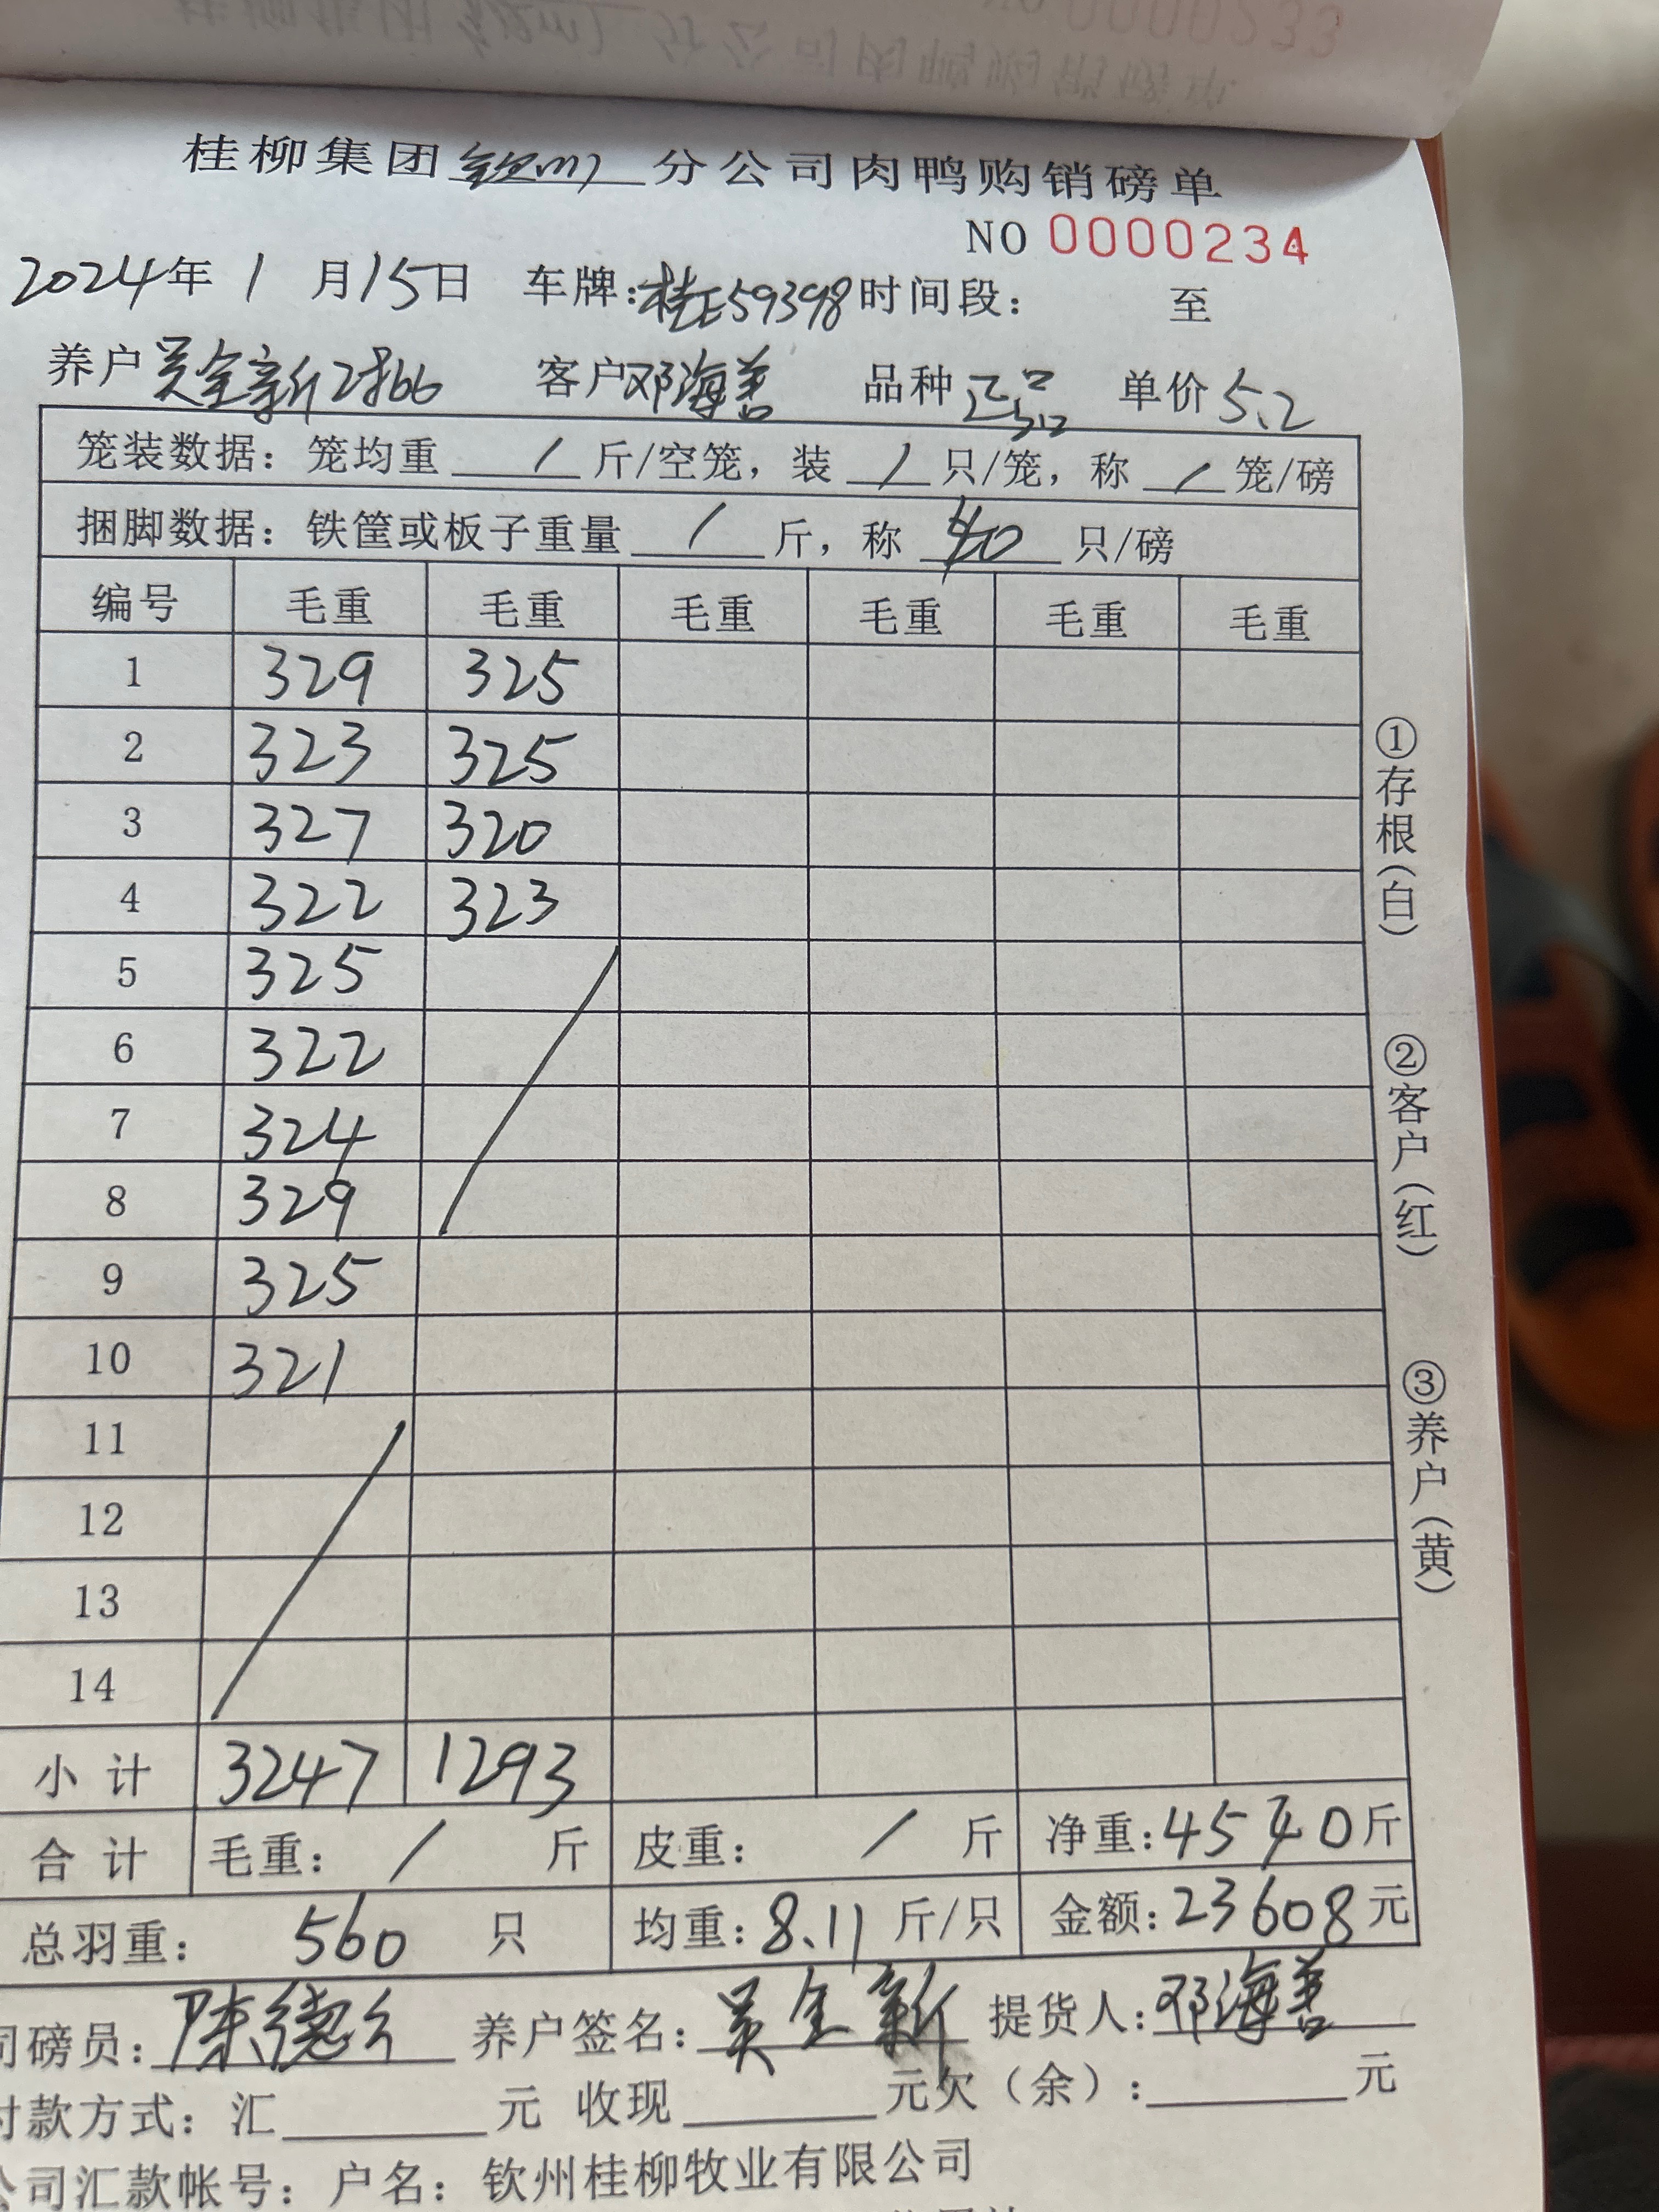 桂柳集团钦州分公司肉鸭购销磅单
NO 0000234
2024年1月15日 车牌:桂E59398 时间段: 至
养户 吴全新2#66 客户 邓海善 品种 正品 单价 5.2
笼装数据: 笼均重 / 斤/空笼, 装 / 只/笼, 称 / 笼/磅
捆脚数据: 铁筐或板子重量 / 斤, 称 40 只/磅
编号 毛重 毛重 毛重 毛重 毛重 毛重
1 329 325
2 323 325
3 327 320
4 322 323
5 325
6 322
7 324
8 329
9 325
10 321
11
12
13
14
小计 3247 1293
合计 毛重: / 斤 皮重: / 斤 净重:4540斤
总羽重: 560 只 均重:8.11斤/只 金额:23608元
司磅员: 陈德 养户签名: 吴全新 提货人:邓海善
付款方式: 汇 元 收现 元欠(余): 元
公司汇款帐号: 户名: 钦州桂柳牧业有限公司
①存根(白)
②客户(红)
③养户(黄)